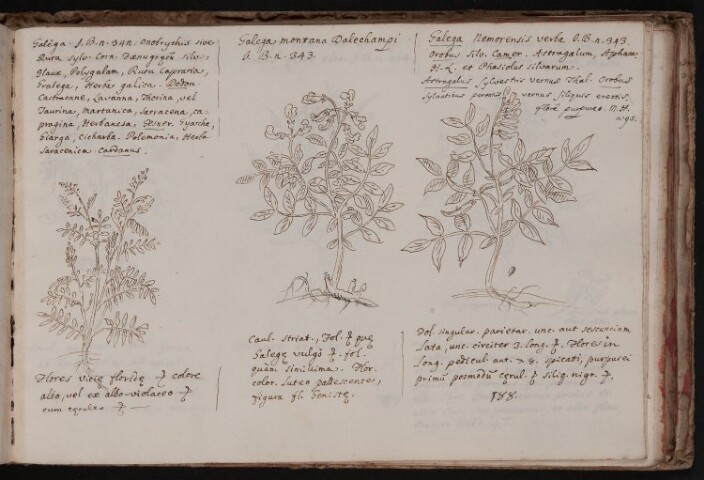 Galega. J.B.n. 342. onobrychis sive
Ruta sylv. Corn. silv.
Glaux, Polygalam, Ruta Capraria,
Gralega, Herba galica. Dodon
Castracane, Lavanna, Thorina, vel
Taurina, martanica, sarracena, ca
pragina, Herbanesa, Gesner.
Giarga, Cicharba. Polemonia, Herba
Saracenica. Cardanus.
Flores vicię floridę colore
albo, vel ex albo-violaceo
cum
Galega montana Dalechampi
J. B. n. 343.
Caul. striat., Fol. quę
Galegę vulgò fol.
quàm simillima. Flor.
color. luteo pallescentes,
figura fl. Genistę.
Galega Nemorensis verba J.B.n. 343.
Orobus silv. Camer. Astragalum,
H.L. et Phasiolus silvarum.
Astragalus sylvestris vernus Thal. Orobus
sylvaticus vernus, siliquis erectis,
flore purpureo. M.H.
Fol. singular. parietar. unc. aut sescunciam
lata, unc. circiter 3. long. Flores in
long. pedicul. aut. 7. 8. spicati, purpurei
primũ posmodũ siliq. nigr.
188.